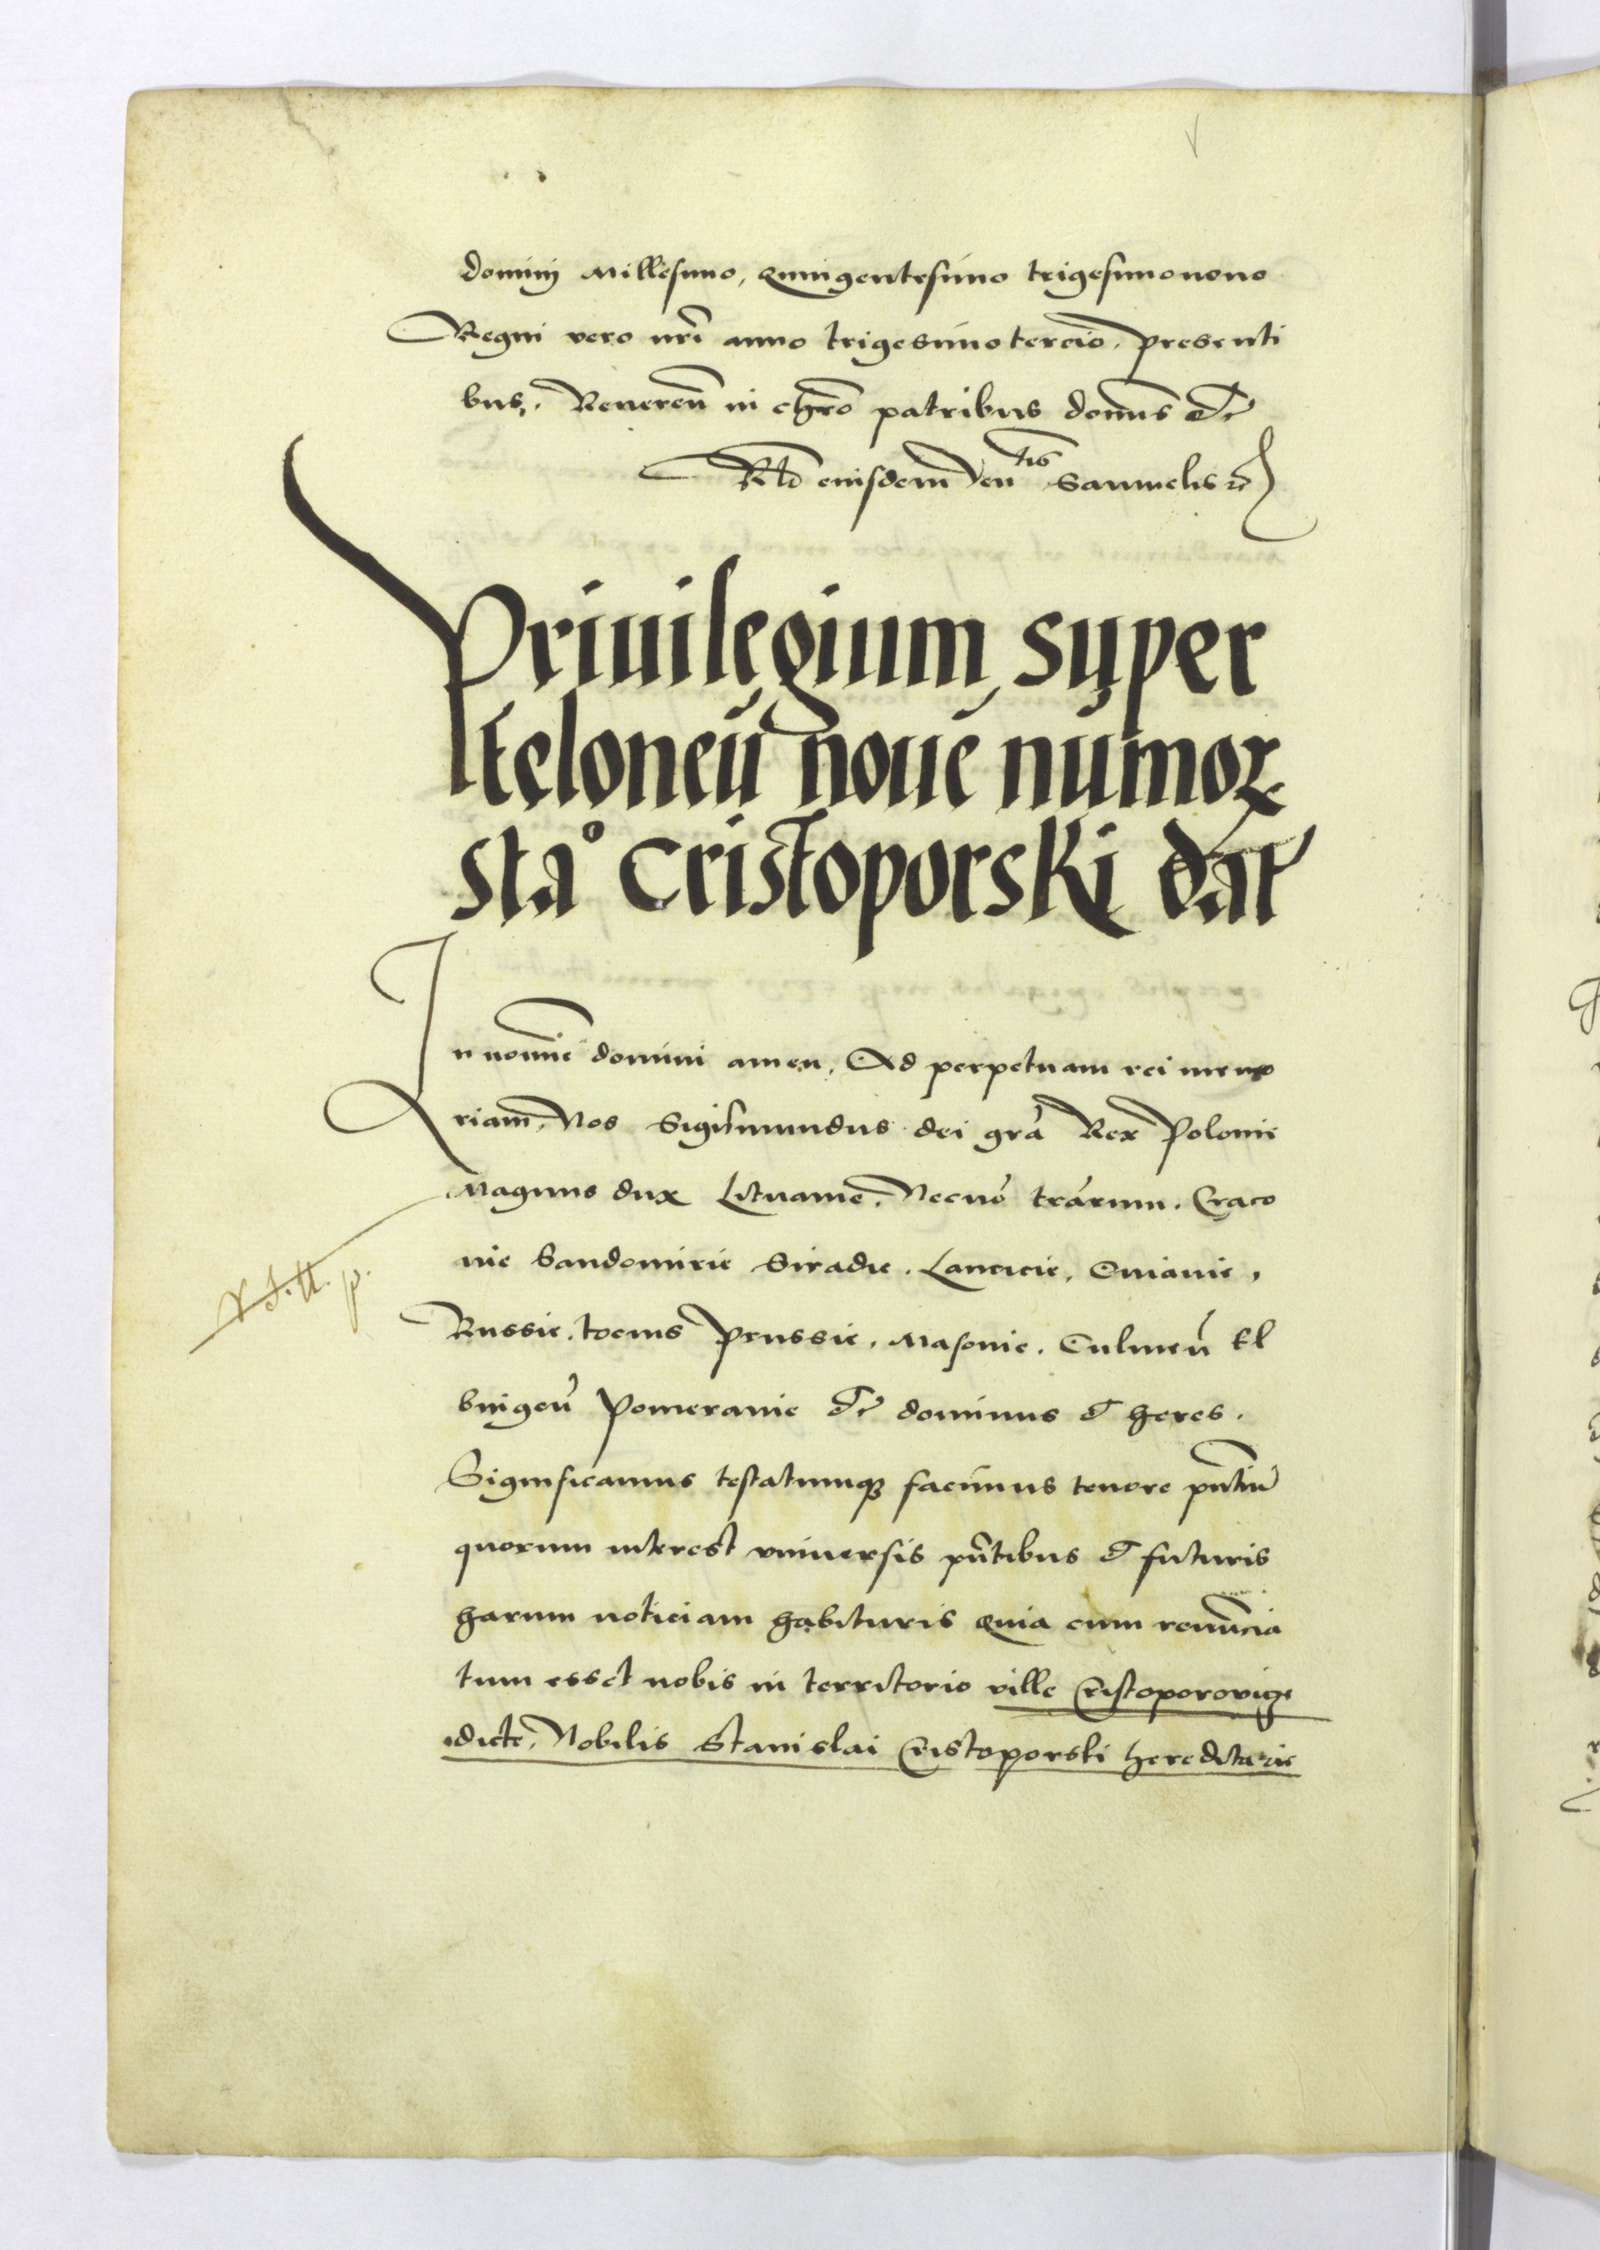 dominj Millesimo, Quingentesimo trigesimonono
Regni vero nr̃i anno trigesimotercio, presenti
bus. Reueren̄ in chr̃o patribus domīs et c̃
Rlo eiusdem ven Samuelis
Priuilegium super
teloneū noue numoꝝ
sta° Cristoporski dat
In nomīe domini amen. Ad perpetuam rei memo
riam, Nos Sigismundus dei gr̃a Rex Polonie
Magnus dux Lituanie. Necno᷉ tr̃arum. Craco
nie Sandomirie Siradie. Lancicie, Cuiauie,
Russie. tocius Prussie. Masonie. Culmen̄ El
bingen̄ Pomeranie et c̃ dominus et heres.
Significamus testatumqꝫ facimus tenore pn̄tiū
quorum interest vniuersis pn̄tibus et futuris
harum noticiam habituris Quia cum renūcia
tum esset nobis in territorio ville Cristoporovige
dicte, Nobilis Stanislai Cristoporski hereditarie